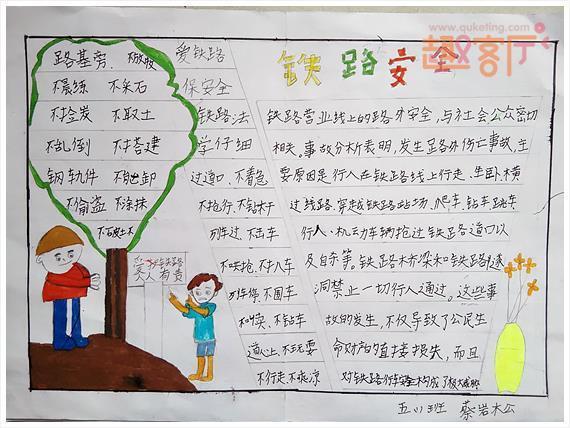 www.quketing.com
趣客厅
铁路安全
路基旁、不放牧
不晨练 不采石
不捡炭 不取土
不乱倒 不搭建
钢轨件 不拆卸
不偷盗 不涂抹
爱铁路
保安全
铁路法
学仔细
过道口、不着急
不抢行、不钻杆
列车过、不击车
不哄抢、不扒车
列车停、不围车
不叫卖、不钻车
道心上、不玩耍
不行走、不乘凉
爱护铁路
人人有责
铁路营业线上的路外安全，与社会公众密切
相关。事故分析表明，发生路外伤亡事故，主
要原因是行人在铁路线上行走、坐卧、横
过线路、穿越铁路站场、爬车、钻车、跳车
行人、机动车辆抢过铁路道口以
及自杀等。铁路桥梁和铁路隧
洞禁止一切行人通过。这些事
故的发生，不仅导致了公民生
命财产的直接损失，而且
对铁路行车安全构成了极大威胁
五(1)班 蔡岩松